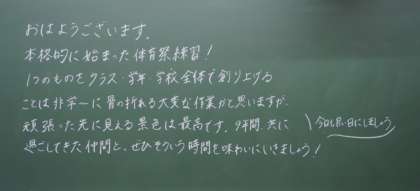 おはようございます。
本格的に始まった体育祭練習！
1つのものをクラス・学年・学校全体で創り上げる
ことは非常に骨の折れる大変な作業かと思いますが、
頑張った先に見える景色は最高です。9年間、共に
過ごしてきた仲間と、ぜひそういう時間を味わいにいきましょう！
今日も良い日にしましょう